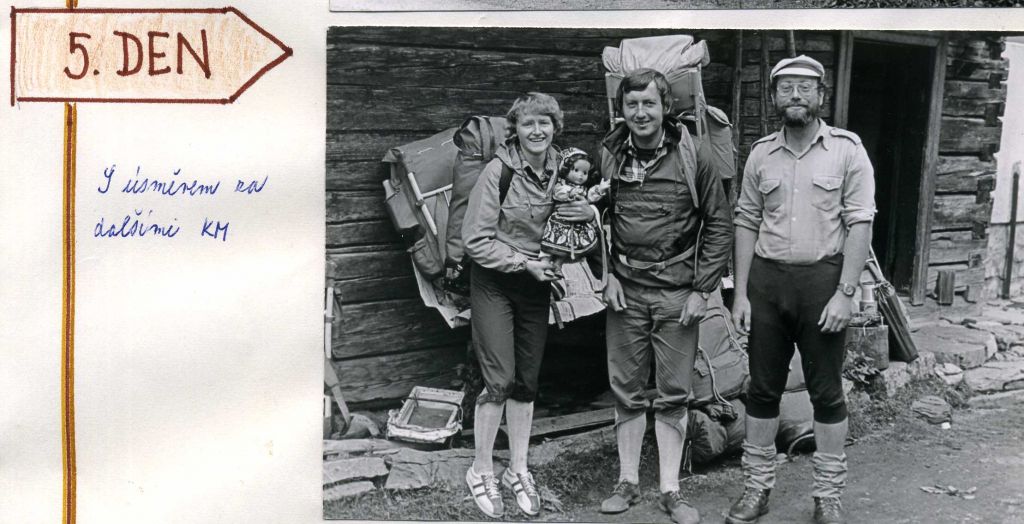 5. DEN
S úsměvem za
dalšími KM